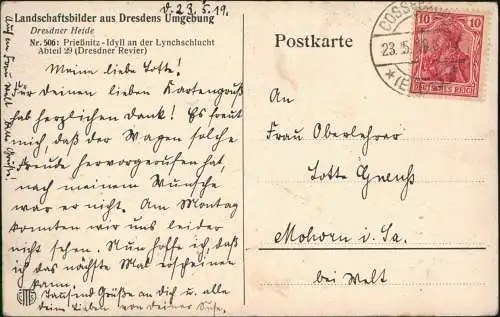 d. 23.5.19.
Landschaftsbilder aus Dresdens Umgebung
Dresdner Heide
Nr. 506: Prießnitz-Idyll an der Lynchschlucht
Abteil 29 (Dresdner Revier)
Meine liebe Lotte!
Für Deinen lieben Kartengruß
hab herzlichen Dank! Es freut
mich daß der Wagen solche
Freude hervorgerufen hat,
nach meinem Wunsche
war er nicht. Am Montag
konnten wir uns leider
nicht sehen. Nun hoffe ich, daß
ich das nächste Mal erscheinen
kann.
Tausend Grüße an dich u. alle
deine Lieben von Deiner
Postkarte
COSSEB
23. 5.
10 10
DEUTSCHES REICH
An
Frau Oberlehrer
Lotte
Mohorn i. Sa.
bei Welt